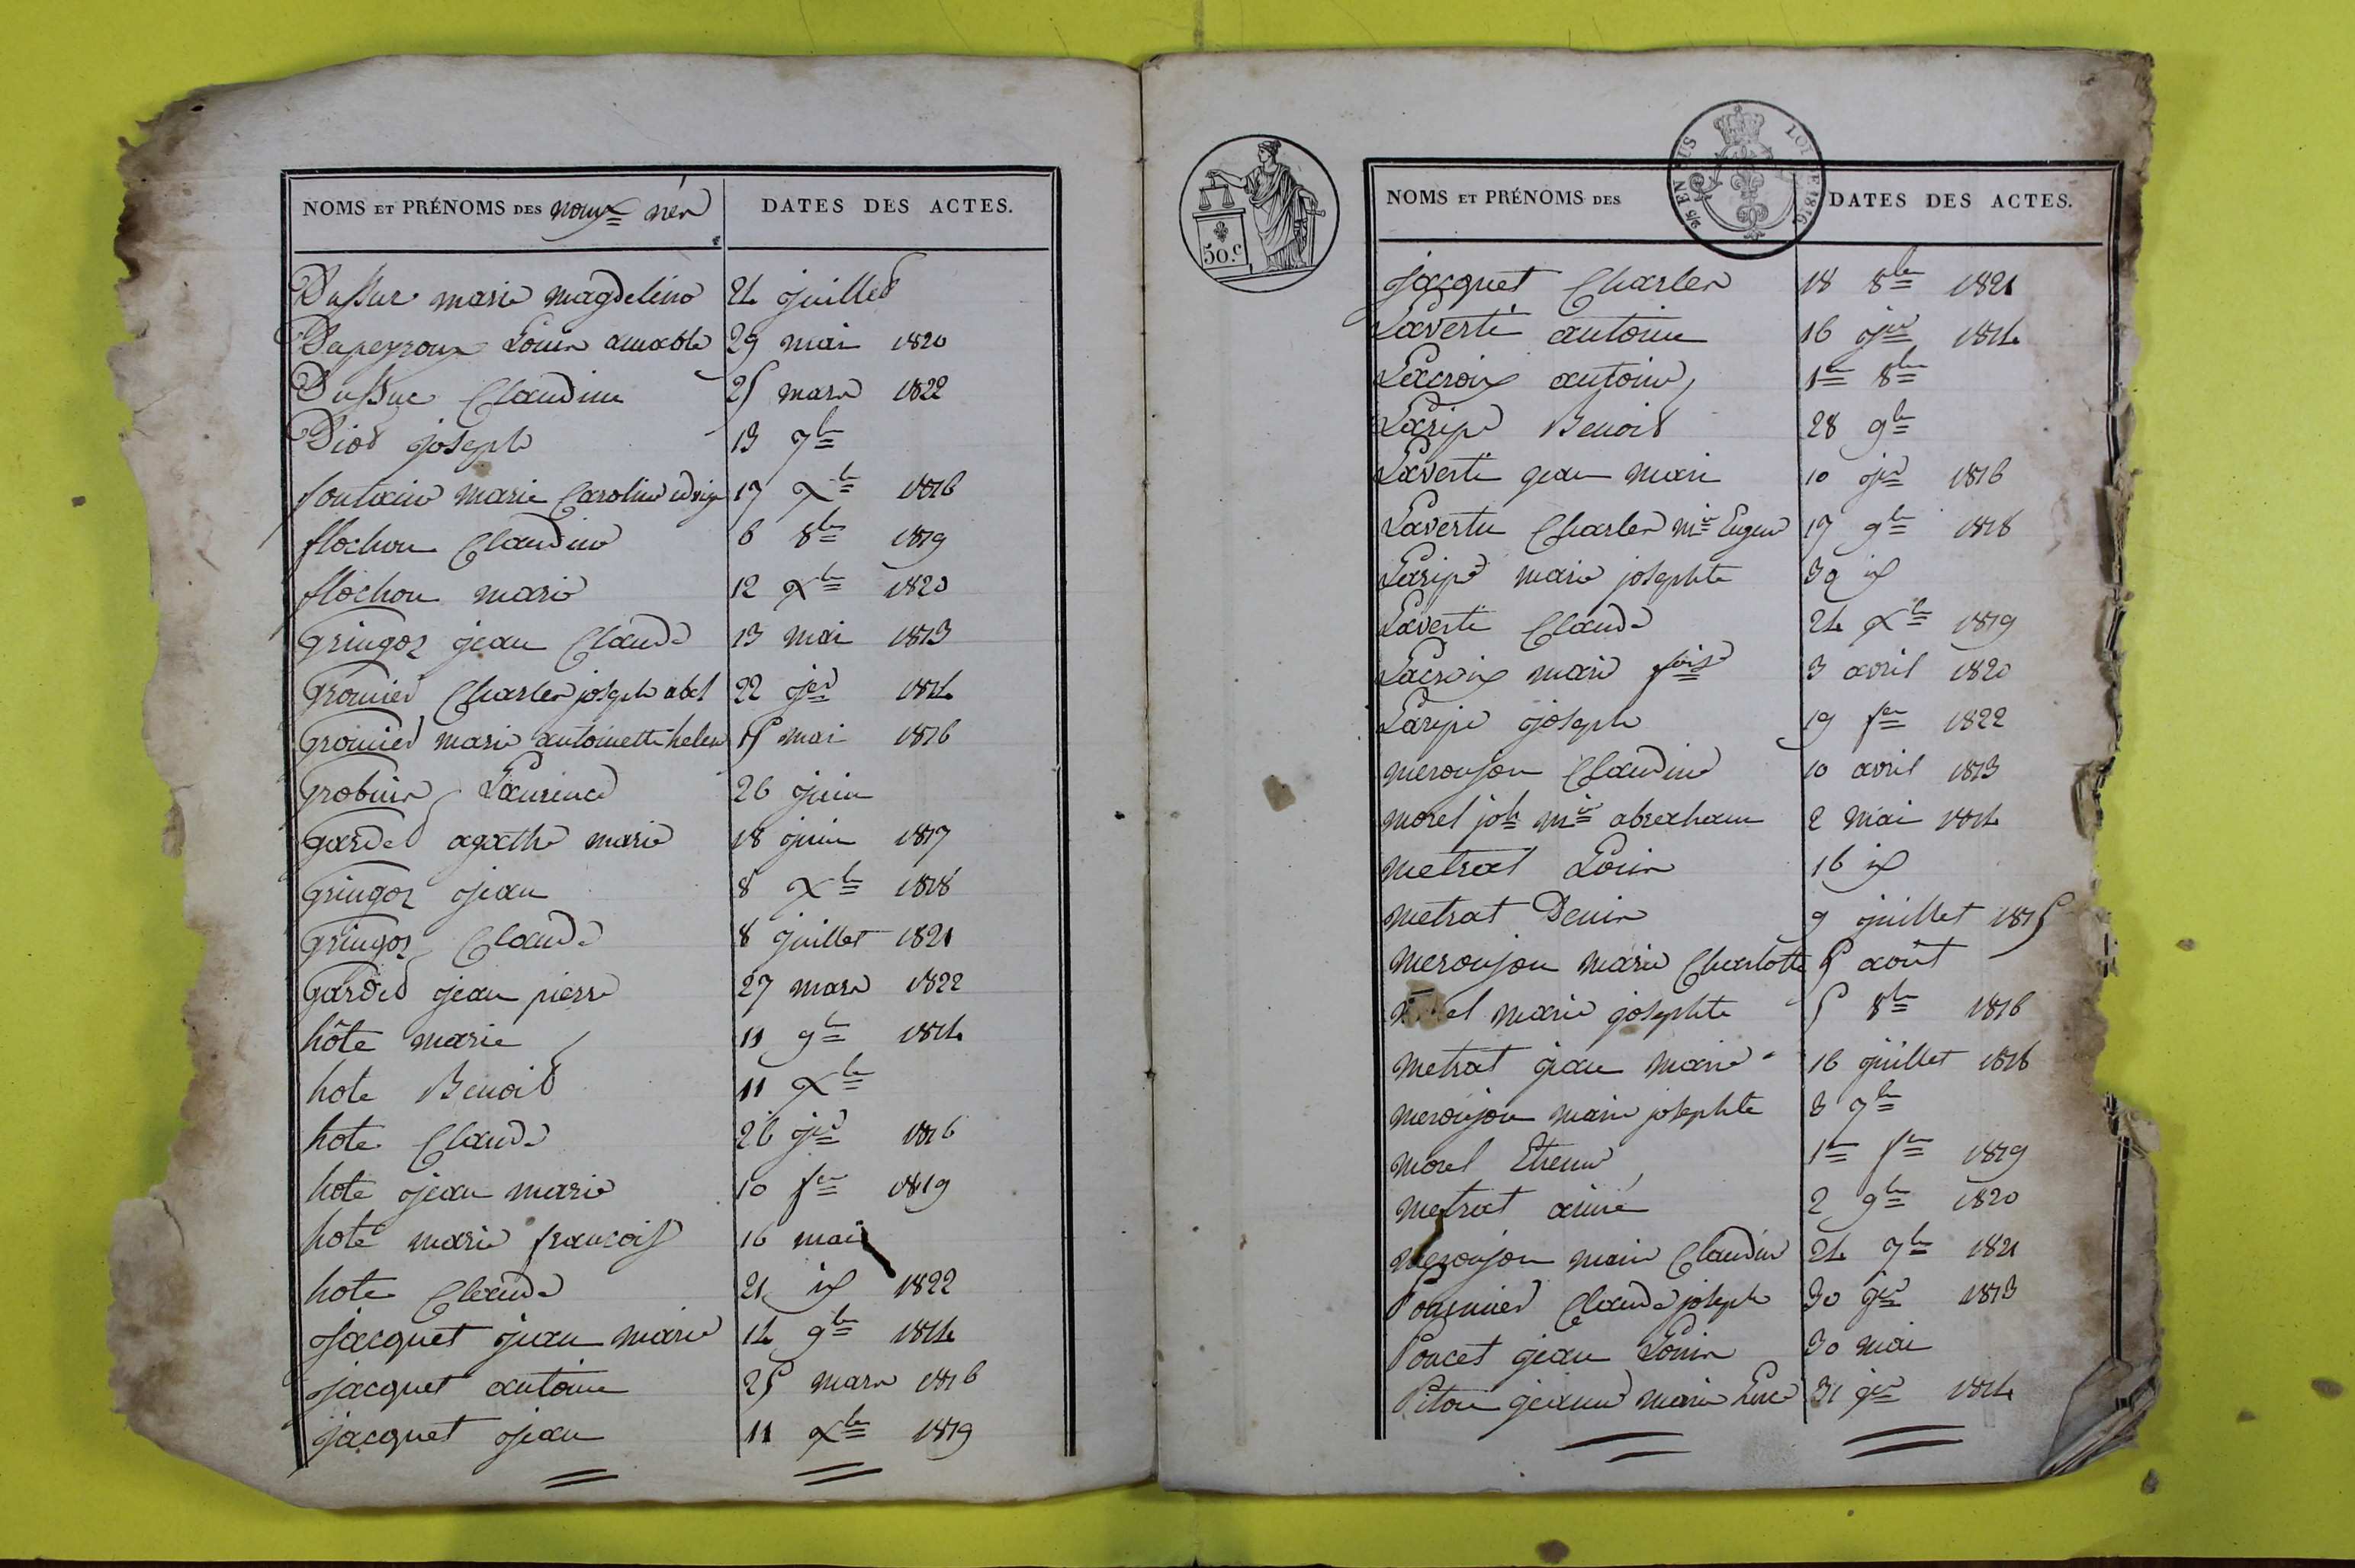 NOMS ET PRÉNOMS DES nouvx nés
DATES DES ACTES.
Dussuc marie magdeline 24 juillet
Dupeyroux Louis aimable 29 mai 1820
Dussuc Claudine 25 mars 1822
Diot joseph 13 7bre
fontaine marie Caroline edwige 17 Xbre 1816
flochon Claudine 6 8bre 1819
flochon marie 12 Xbre 1820
Gringoz jean Claude 13 mai 1813
Gromier Charles joseph abel 22 jer 1814
Gromier marie antoinette helene 15 mai 1816
Grobuis Laurence 26 juin
Gardet agathe marie 18 juin 1817
Gringoz jean 8 Xbre 1818
Gringoz Claude 8 juillet 1821
Gardet jean pierre 27 mars 1822
hôte marie 11 9bre 1814
hote Benoit 11 Xbre
hote Claude 26 jer 1816
hote jean marie 10 fer 1819
hote marie françoise 16 mai
hote Claude 21 id 1822
jacquet jean marie 14 9bre 1814
jacquet antoine 25 mars 1816
jacquet jean 11 Xbre 1819
50.C
25 EN SUS
LOI DE 1816
NOMS ET PRÉNOMS DES
DATES DES ACTES.
jacquet Charles 18 8bre 1821
Laverti antoine 16 jer 1814
Lacroix antoine 1er 8bre
Laripe Benoit 28 9bre
Laverti jean marie 10 jer 1816
Lavertu Charles mie Eugene 17 9bre 1818
Laripe marie josephte 30 id
Laverti Claude 24 Xbre 1819
Lacroix marie foise 3 avril 1820
Laripe joseph 19 fer 1822
meroujon Claudine 10 avril 1813
morel joh mie abraham 2 mai 1814
metrat Louis 16 id
metrat Denis 9 juillet 1815
meroujon marie Charlotte 5 août
el marie josephte 5 8bre 1816
metrat jean marie 16 juillet 1818
meroujon marie josephte 8 7bre
morel Etienne 1er fer 1819
metrat aimé 2 9bre 1820
meroujon marie Claudine 24 7bre 1821
Claude joseph 30 jer 1813
Poncet jean Louis 30 mai
Piton jeanne marie Luce 31 jer 1814